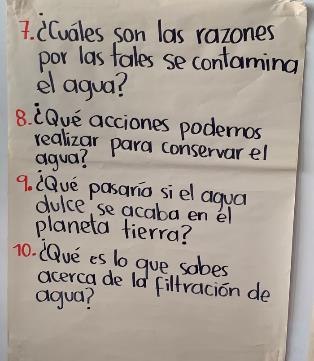 7. ¿Cuáles son las razones
por las tales se contamina
el agua?
8. ¿Qué acciones podemos
realizar para conservar el
agua?
9. ¿Qué pasaría si el agua
dulce se acaba en el
planeta tierra?
10. ¿Qué es lo que sabes
acerca de la filtración de
agua?